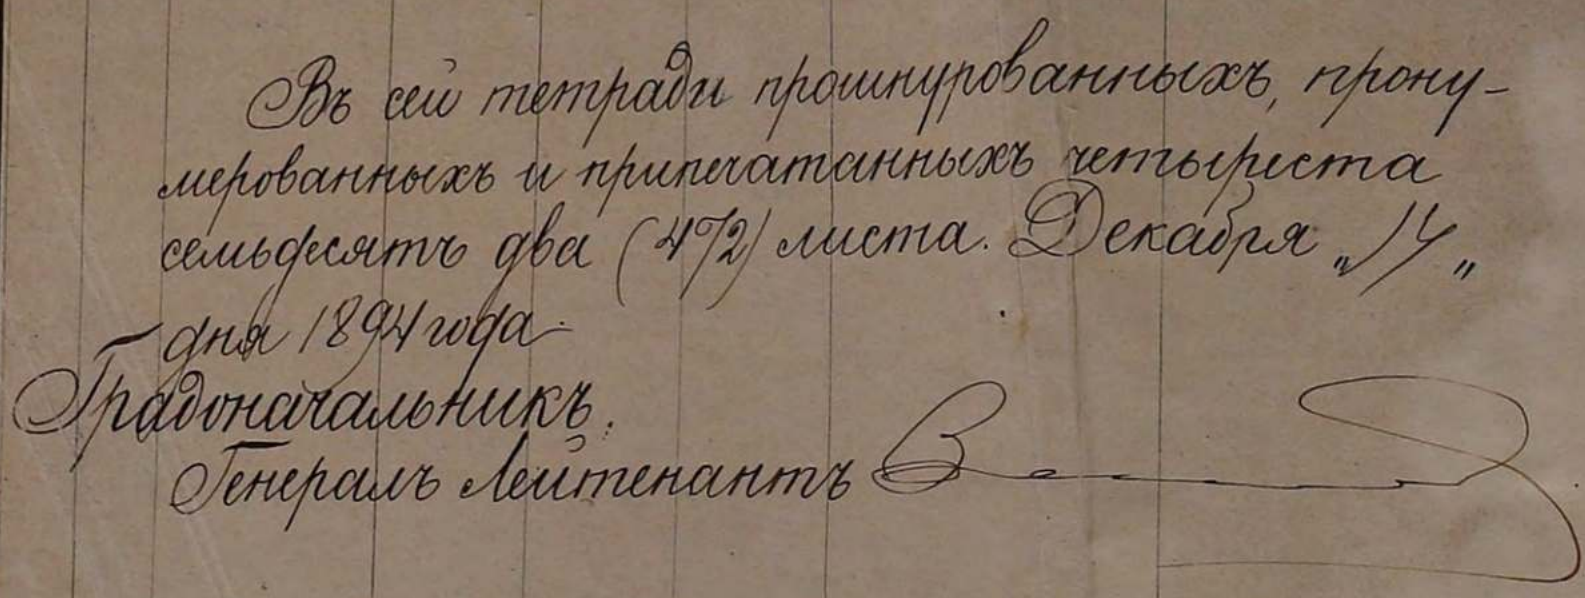 Въ сей тетради прошнурованныхъ, прону-
мерованныхъ и припечатанныхъ четыреста
семьдесятъ два (472) листа. Декабря „14„
дня 1894 года.
Градоначальникъ,
Генералъ Лейтенантъ